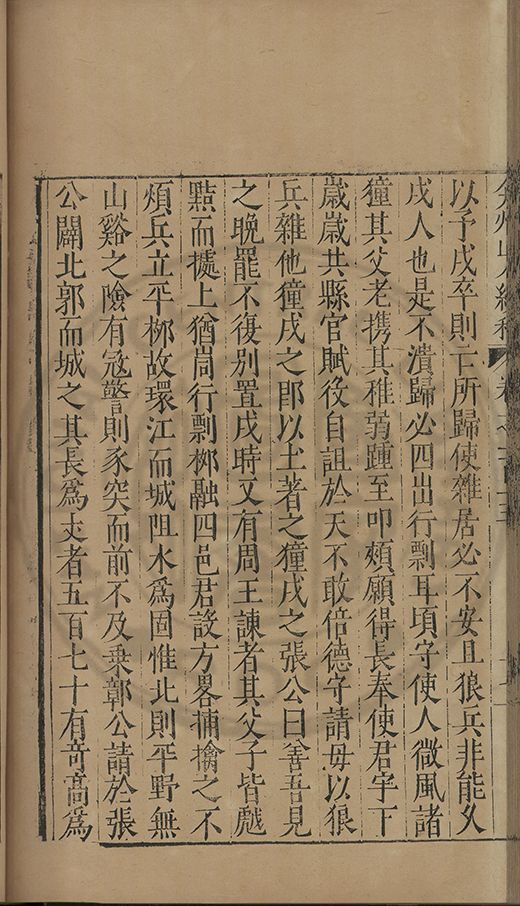 弇州山人續稿 卷之一百
以予戍卒則亡所歸使雜居必不安且狼兵非能久
戍人也是不潰歸必四出行剽耳頃守使人微風諸
獞其父老携其稚弱踵至叩頰願得長奉使君宇下
歳歳共縣官賦役自詛於天不敢倍德守請毋以狼
兵雜他獞戍之即以土著之獞戍之張公曰善吾見
之晚罷不復別置戍時又有周王諫者其父子皆䖍
黠而㨿上猶峝行剽栁融四邑君設方畧捕擒之不
煩兵立平栁故環江而城阻水爲固惟北則平野無
山谿之險有冦警則豕突而前不及乗鄣公請於張
公闢北郭而城之其長爲丈者五百七十有竒高爲